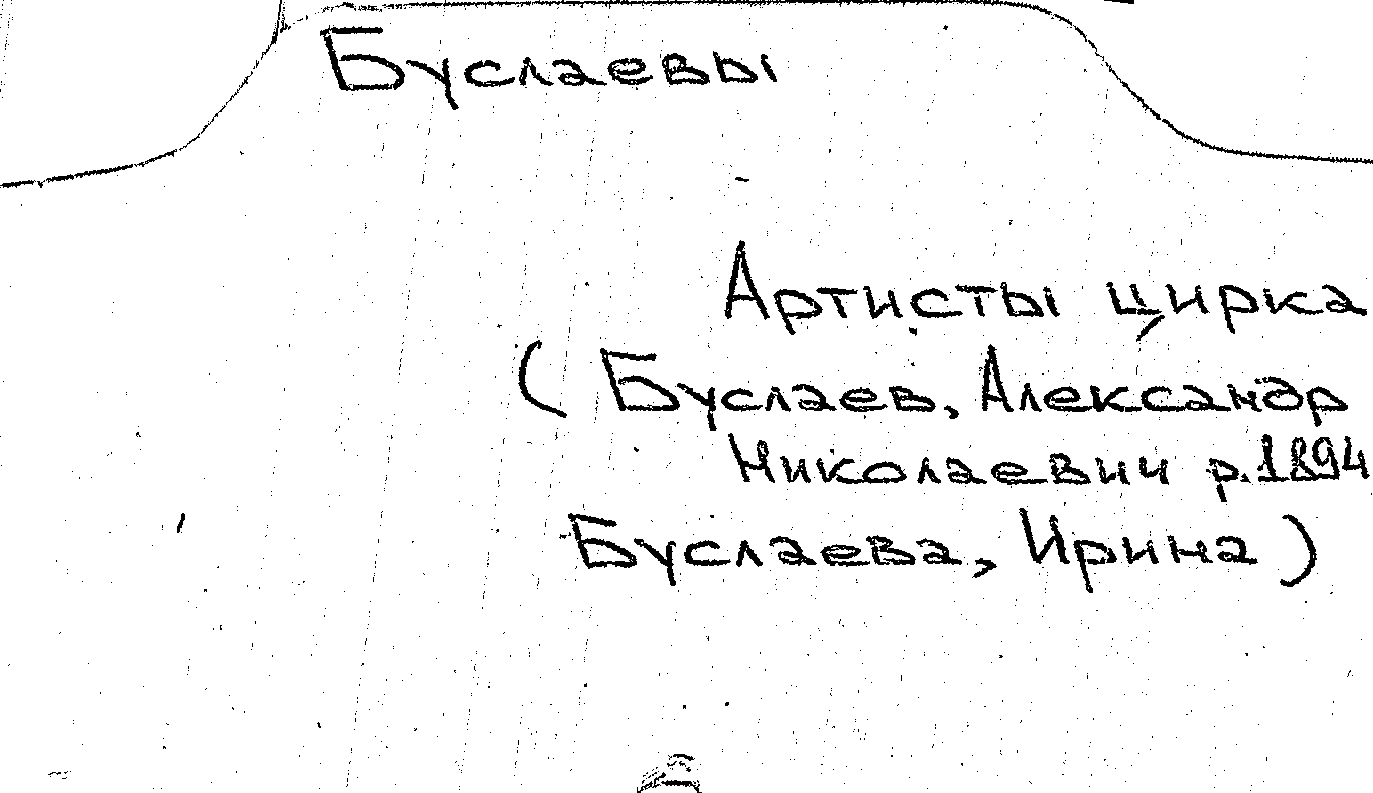 Буслаевы
Артисты цирка
( Буслаев, Александр
Николаевич р. 1894
Буслаева, Ирина )